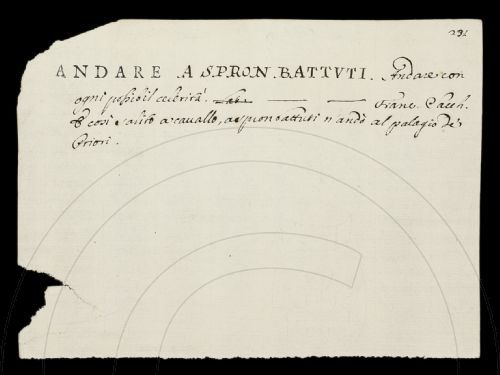 231
ANDARE A SPRON BATTUTI. Andare con
ogni possibil celerità. Franc. Sacch.
E così salito a cavallo, a spron battuti n'andò al palagio de'
Priori.